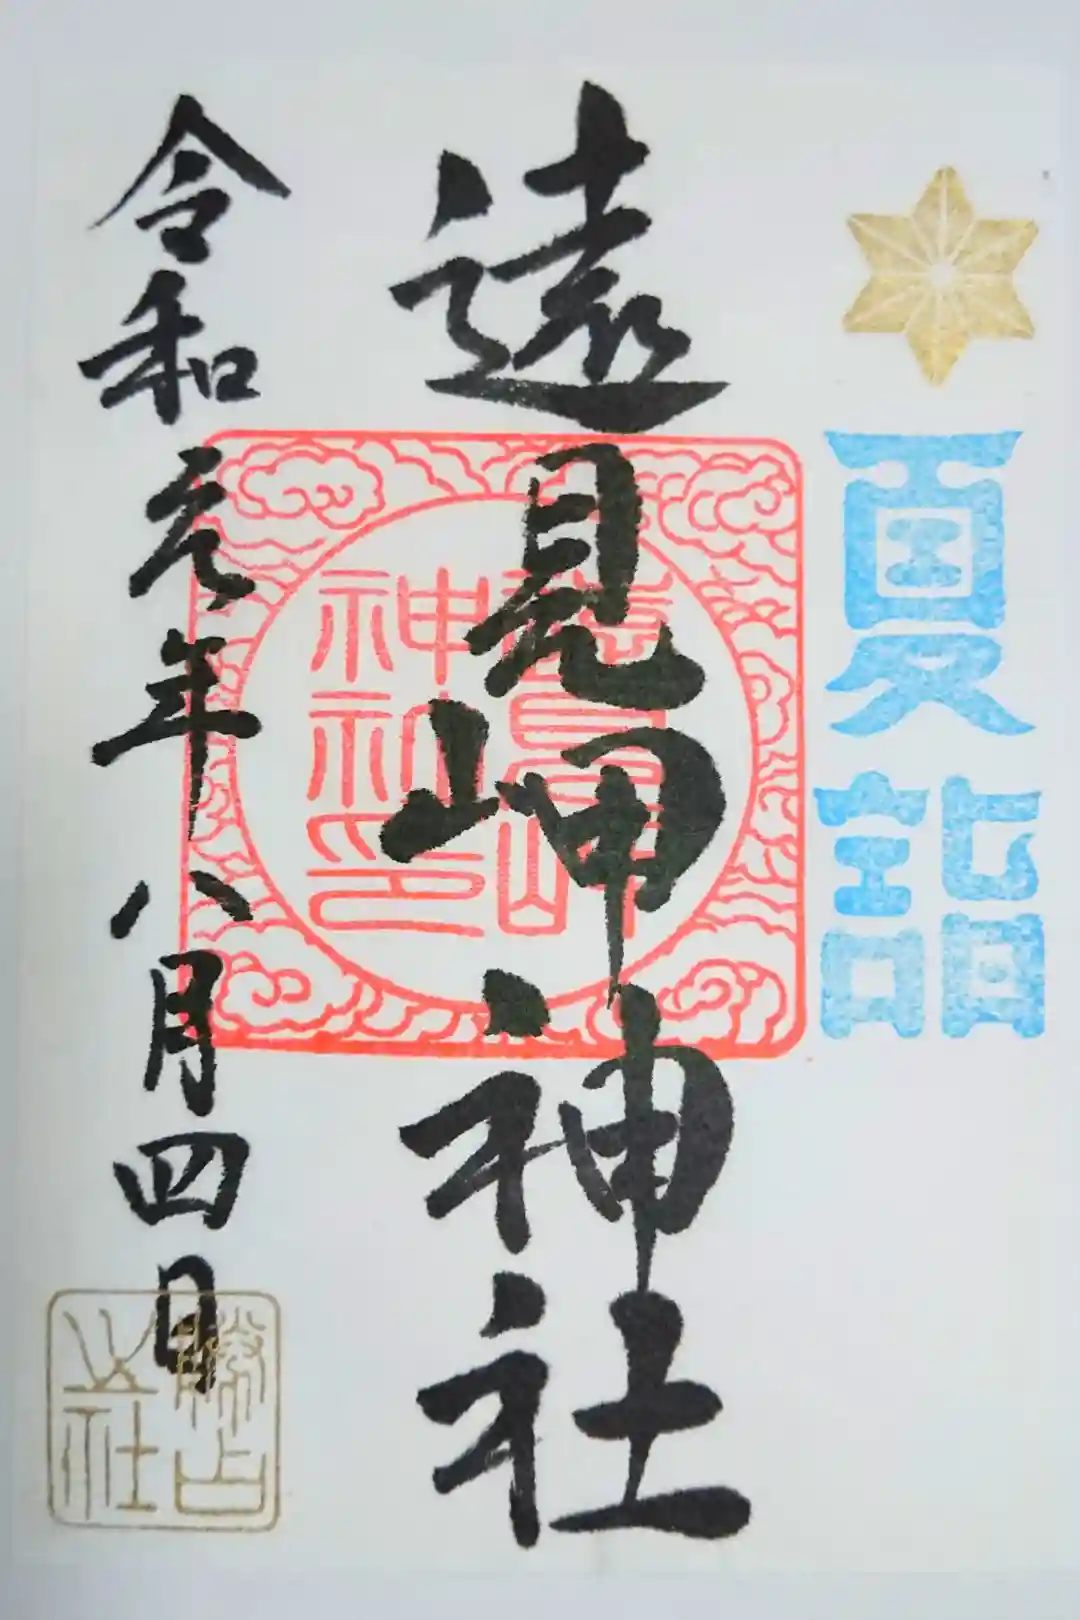 夏詣
遠見岬神社
遠見岬
神社印
令和元年八月四日
勝占
之社